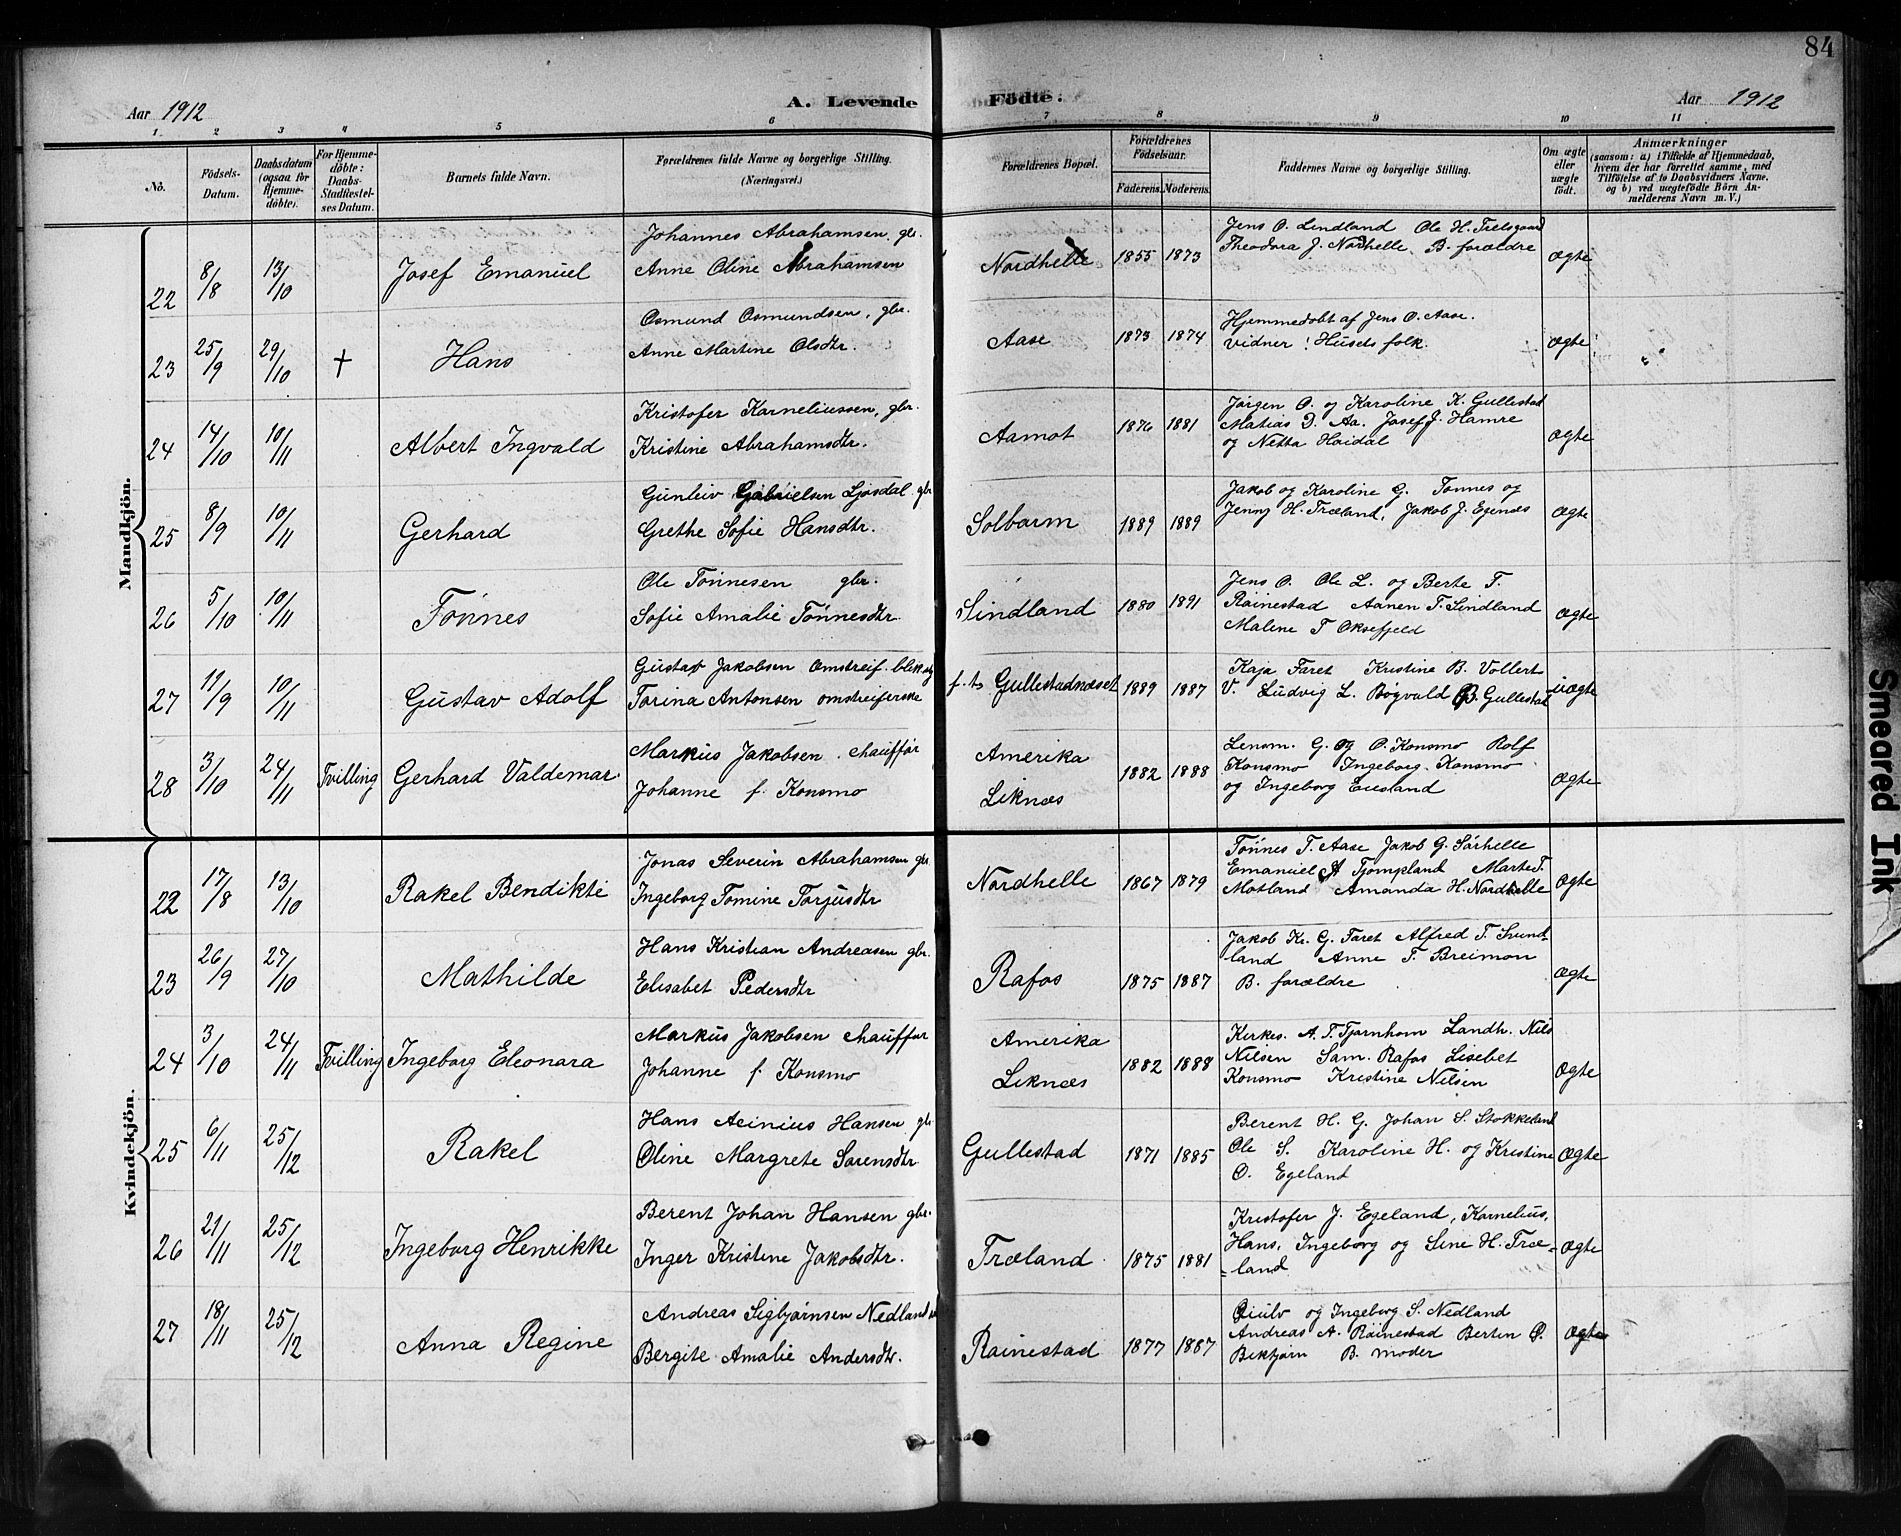 84
Aar 1912
A. Levende Födte.
Aar 1912
1 2 3 4 5 6 7 8 9 10 11
No.
Födsels-Datum.
Daabsdatum (ogsaa for Hjemmedöbte).
For Hjemmedöbte: Daabs-Stadfæstelses Datum.
Barnets fulde Navn.
Forældrenes fulde Navne og borgerlige Stilling. (Næringsvei.)
Forældrenes Bopæl.
Forældrenes Födselsaar.
Faderens. Moderens.
Faddernes Navne og borgerlige Stilling.
Om ægte eller uægte födt.
Anmærkninger
(saasom: a) i Tilfælde af Hjemmedaab, hvem der har forrettet samme, med Tilföielse af to Daabsvidners Navne, og b) ved uægtefödte Börn Anmelderens Navn m. V.)
Mandkjön.
22 8/8 13/10 Josef Emanuel
Johannes Abrahamsen. gbr.
Anne Oline Abrahamsen
Nordhelle 1855 1873
Jens O. Lindland Ole H. Trelsgaard
Theodora J. Nordhelle. B. forældre
Ægte
23 25/9 29/10 † Hans
Osmund Osmundsen, gbr.
Anne Martine Olsdtr.
Aase 1873 1874
Hjemmedøbt af Jens O. Aase.
Vidner: Husets folk.
Ægte
24 14/10 10/11 Albert Ingvald
Kristofer Karneliussen, gbr.
Kristine Abrahamsdtr.
Aamot 1876 1881
Jørgen O. og Karoline K. Gullestad
Matias D. Aa. Josef J. Hamre
og Netta Høidal
Ægte
25 8/9 10/11 Gerhard
Gunleiv Gabrielsen Ljosdal. gbr
Grethe Sofie Hansdtr.
Solbarm 1889 1889
Jakob og Karoline G. Tønnes og
Jenny H. Træland, Jakob J. Egenæs
Ægte
26 5/10 10/11 Tønnes
Ole Tønnesen gbr.
Sofie Amalie Tønnesdtr.
Sindland 1880 1891
Jens O. Ole L. og Berte T.
Røinestad Aanen T. Sindland
Malene T Oksefjeld
Ægte
27 11/9 10/11 Gustav Adolf
Gustav Jakobsen omstreif. blikslg
Torina Antonsen omstreiferske
f. t. Gullestadnæset 1889 1887
Kaja Faret Kristine B. Vollert
V. Ludvig L. Bøgvald B. Gullestad
uægte
28 3/10 24/11 Tvilling Gerhard Valdemar
Markus Jakobsen. chauffør
Johanne f. Konsmo
Amerika
Liknæs
1882 1888
Lensm. G. og O. Konsmo Rolf
Konsmo Ingeborg Konsmo
og Ingeborg Eiesland
Ægte
Kvindekjön.
22 17/8 13/10 Rakel Bendikte
Jonas Severin Abrahamsen gbr
Ingeborg Tomine Torjusdtr
Nordhelle 1867 1879
Tønnes T. Aase Jakob G. Sørhelle
Emanuel A Tjompland Marte T.
Motland Amanda H. Nordhelle
Ægte
23 26/9 27/10 Mathilde
Hans Kristian Andreasen gbr.
Elisabet Pedersdtr
Rafos 1875 1887
Jakob Kr. G. Faret Alfred T. Svind-
land Anne T. Breimon
B. forældre
Ægte
24 3/10 24/11 Tvilling Ingeborg Eleonara
Markus Jakobsen chauffør
Johanne f. Konsmo
Amerika
Liknæs
1882 1888
Kirkes. A. T. Tjørnhom Landh. Nils
Nilsen Sam. Rafos Lisebet
Konsmo Kristine Nilsen
Ægte
25 6/11 25/12 Rakel
Hans Acinius Hansen gbr
Oline Margrete Sørensdtr
Gullestad 1871 1885
Berent H. G. Johan S. Stokkeland
Ole S. Karoline H. og Kristine
O. Egeland
Ægte
26 21/11 25/12 Ingeborg Henrikke
Berent Johan Hansen gbr.
Inger Kristine Jakobsdtr.
Træland 1875 1881
Kristofer J. Egeland, Karnelius,
Hans, Ingeborg og Sine H. Træ=
=land
Ægte
27 18/11 25/12 Anna Regine
Andreas Sigbjørnsen Nedland
Bergite Amalie Andersdtr.
Røinestad 1877 1887
Eiulv og Ingeborg S. Nedland
Andreas A. Røinestad Bertin O.
Birkjørn B. moder
Ægte
Smeared Ink